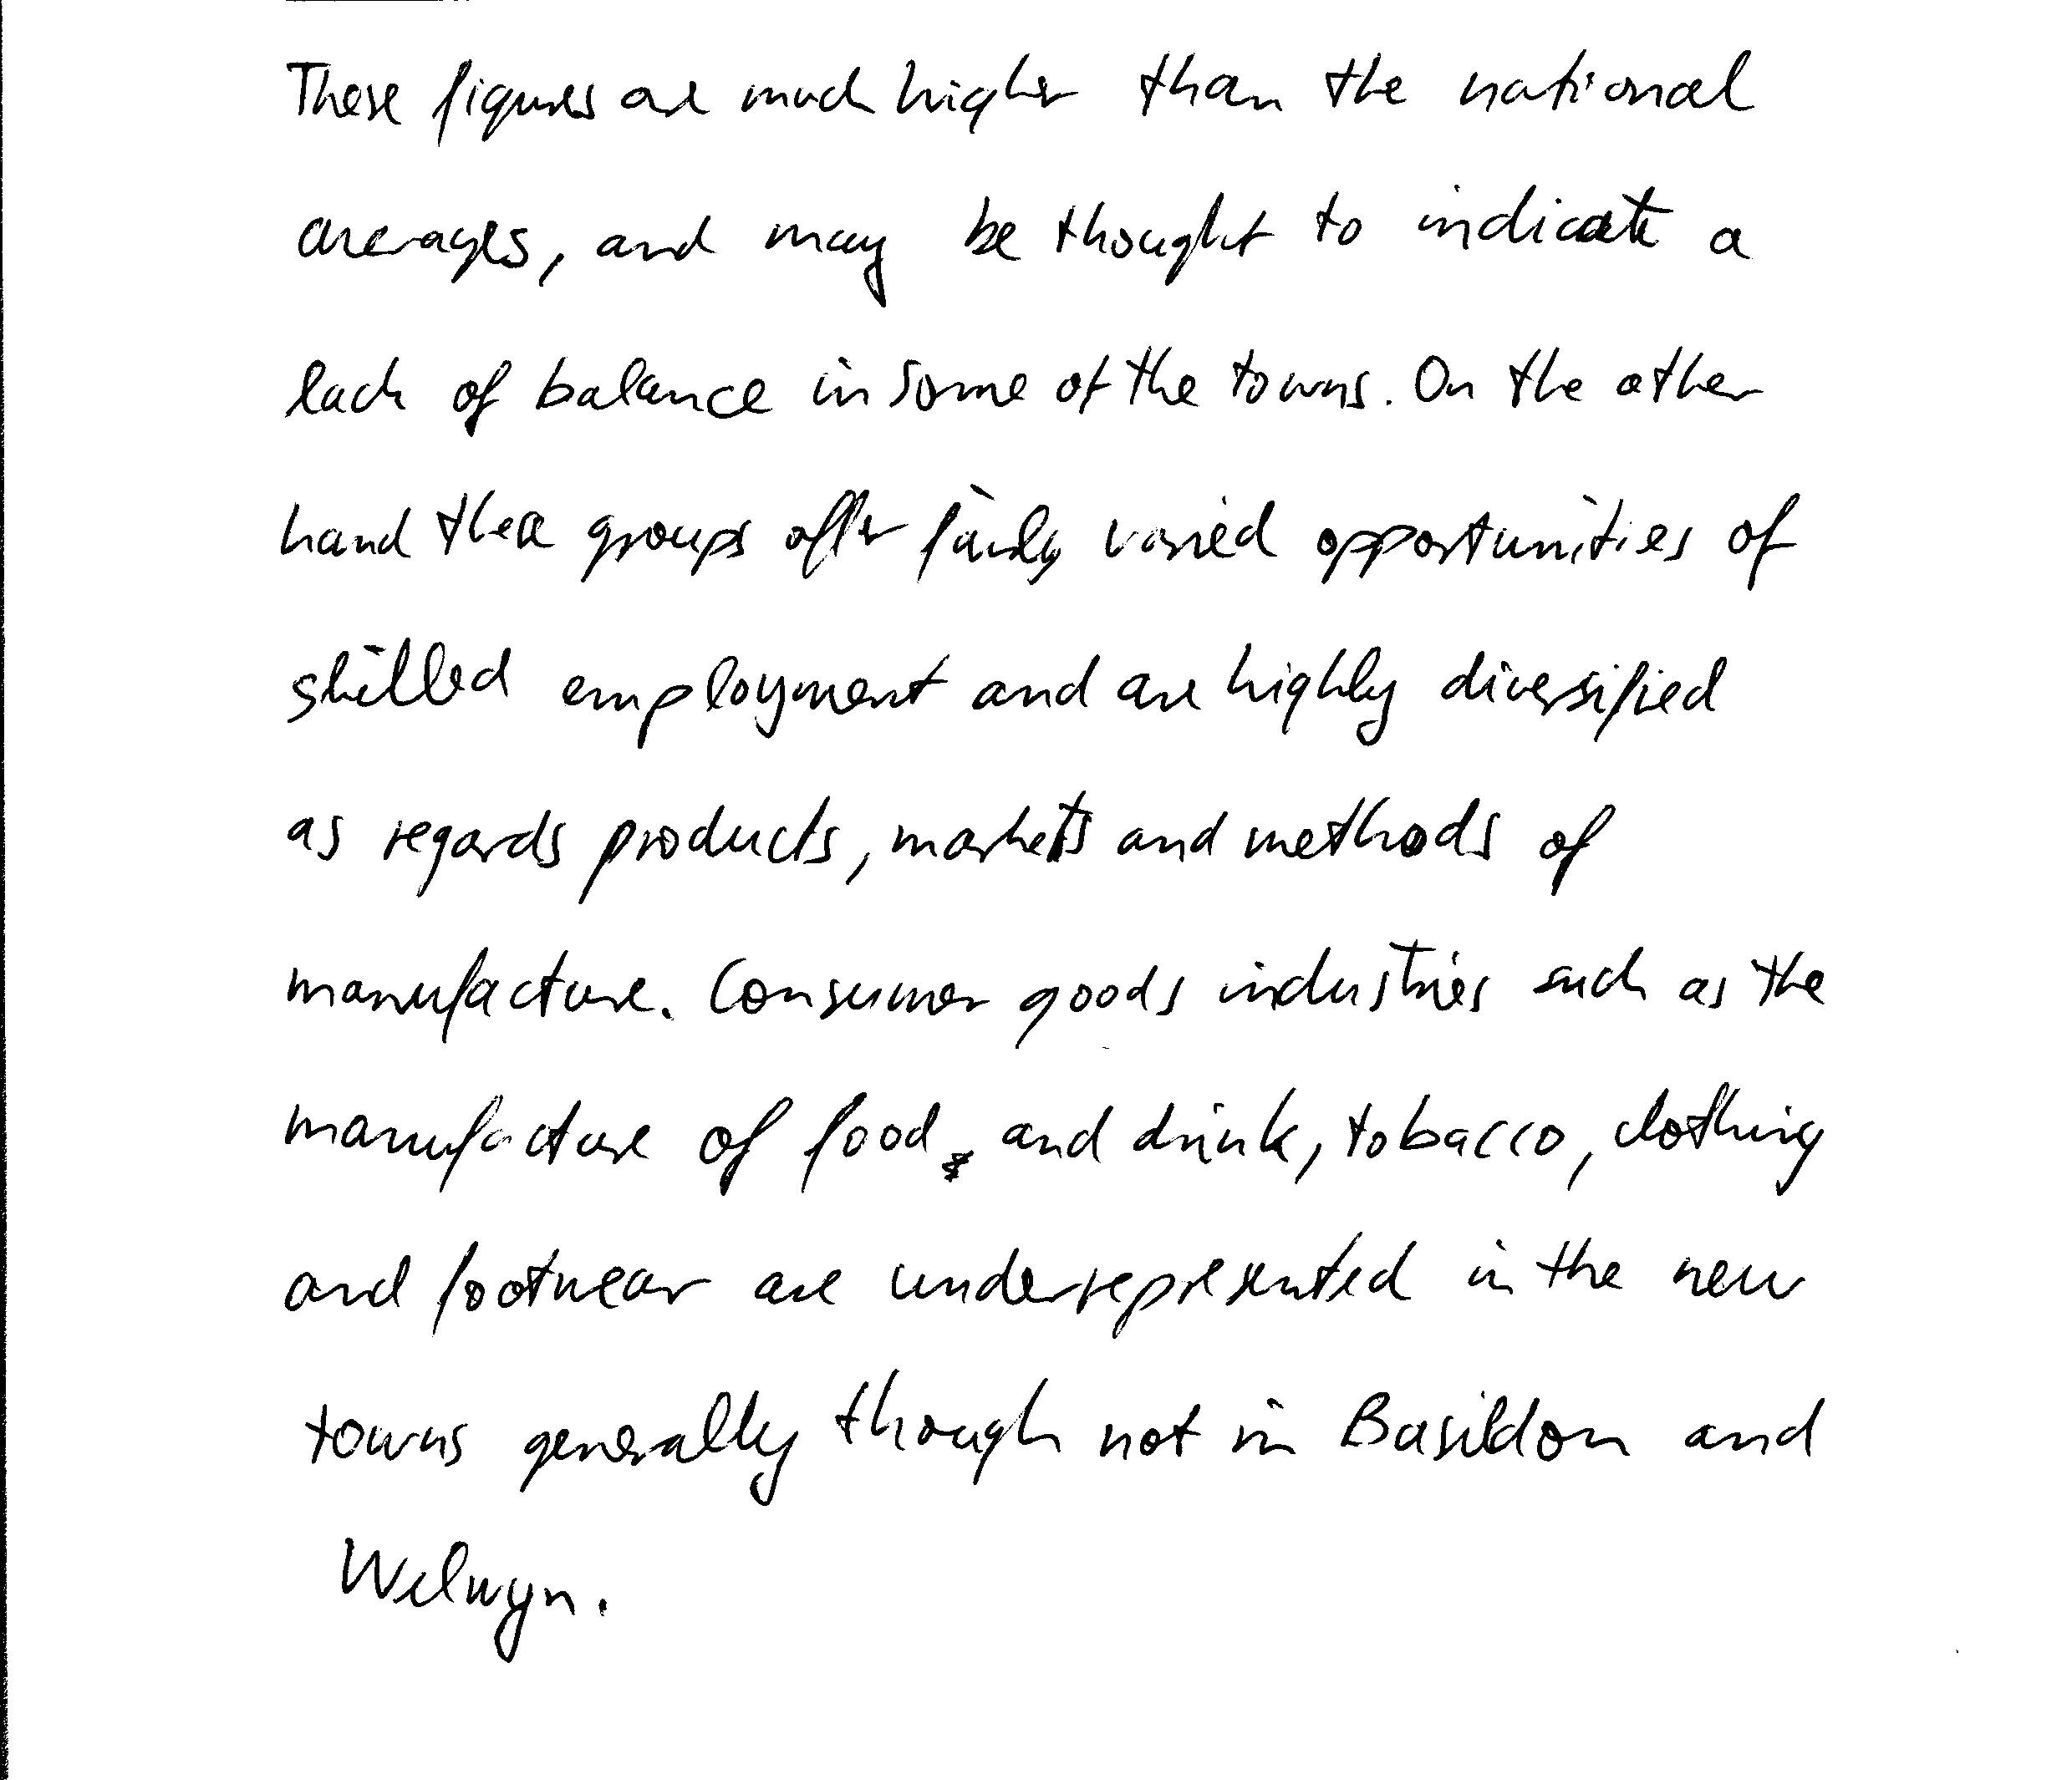 These figures are much higher than the national
averages, and may be thought to indicate a
lack of balance in some of the towns. On the other
hand these groups offer fairly varied opportunities of
skilled employment and are highly diversified
as regards products, markets and methods of
manufacture. Consumer goods industries such as the
manufacture of food, and drink, tobacco, clothing
and footwear are underrepresented in the new
towns generally though not in Basildon and
Welwyn.